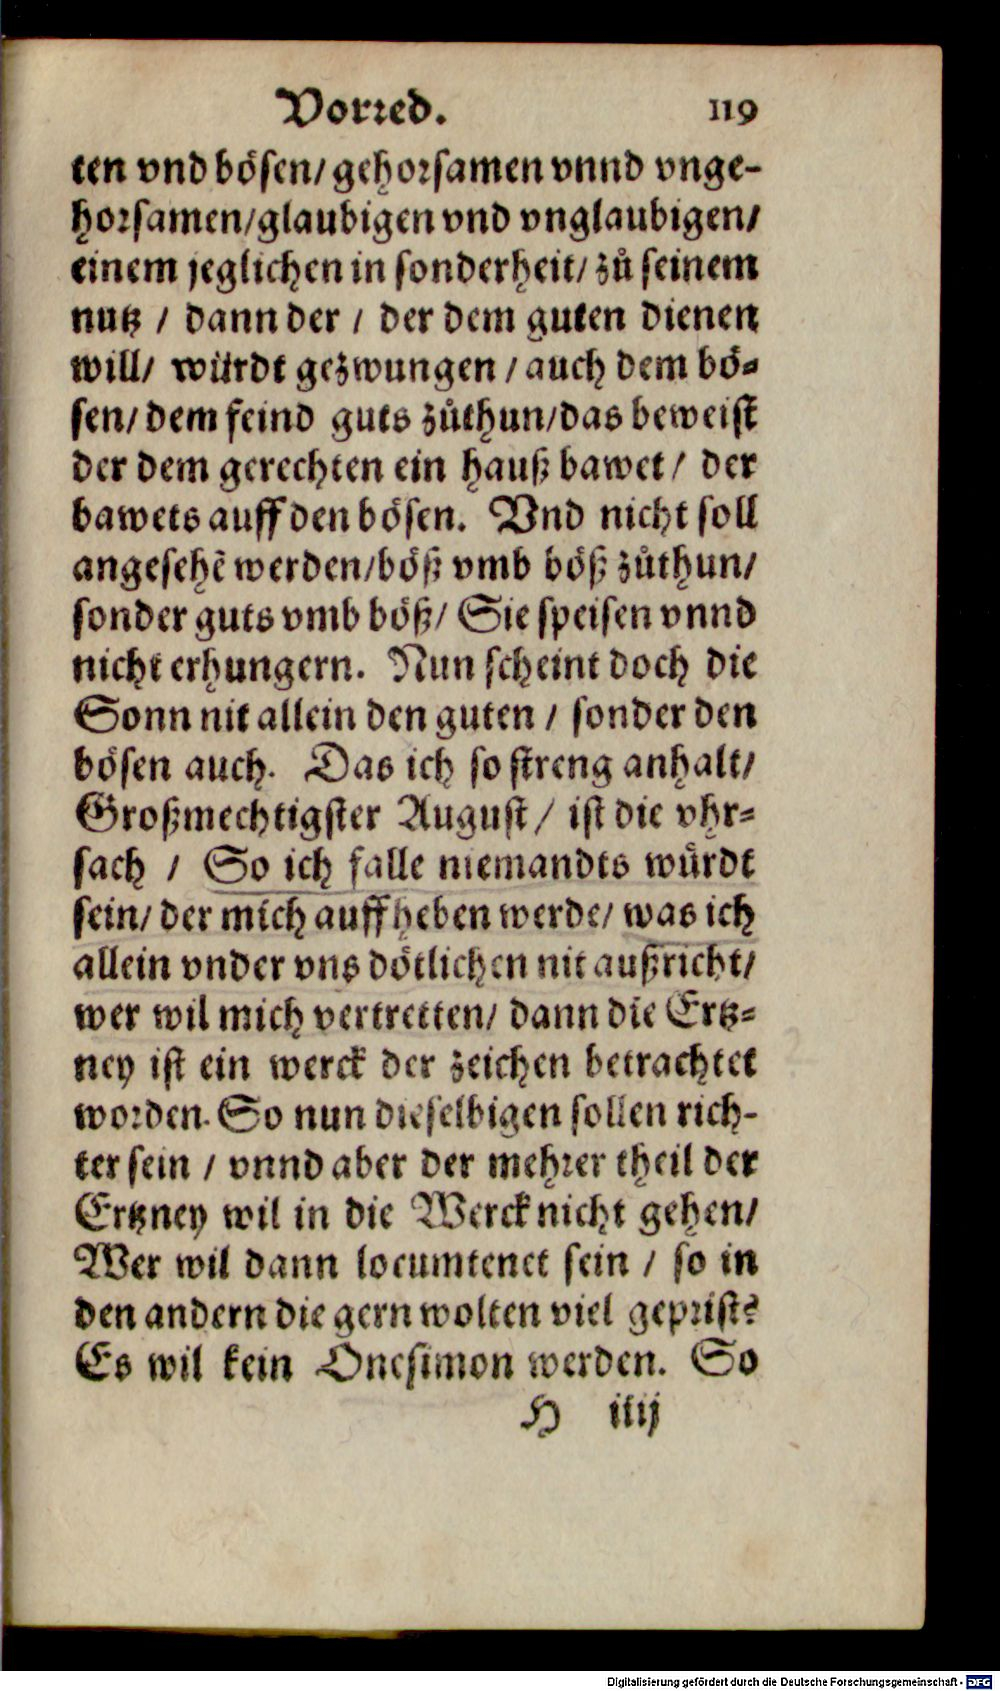 Vorred. 119
ten vnd bösen/ gehorsamen vnnd vnge-
horsamen/glaubigen vnd vnglaubigen/
einem jeglichen in sonderheit/ zů seinem
nutz / dann der / der dem guten dienen
will/ würdt gezwungen / auch dem bö-
sen/ dem feind guts zůthun/das beweist
der dem gerechten ein hauß bawet / der
bawets auff den bösen. Vnd nicht soll
angesehẽ werden/böß vmb böß zůthun/
sonder guts vmb böß/ Sie speisen vnnd
nicht erhungern. Nun scheint doch die
Sonn nit allein den guten / sonder den
bösen auch. Das ich so streng anhalt/
Großmechtigster August / ist die vhr-
sach / So ich falle niemandts würdt
sein/ der mich auffheben werde/ was ich
allein vnder vns dötlichen nit außricht/
wer wil mich vertretten/ dann die Ertz-
ney ist ein werck der zeichen betrachtet
worden. So nun dieselbigen sollen rich-
ter sein / vnnd aber der mehrer theil der
Ertzney wil in die Werck nicht gehen/
Wer wil dann locumtenet sein / so in
den andern die gern wolten viel geprist?
Es wil kein Onesimon werden. So
H iiij
Digitalisierung gefördert durch die Deutsche Forschungsgemeinschaft - DFG